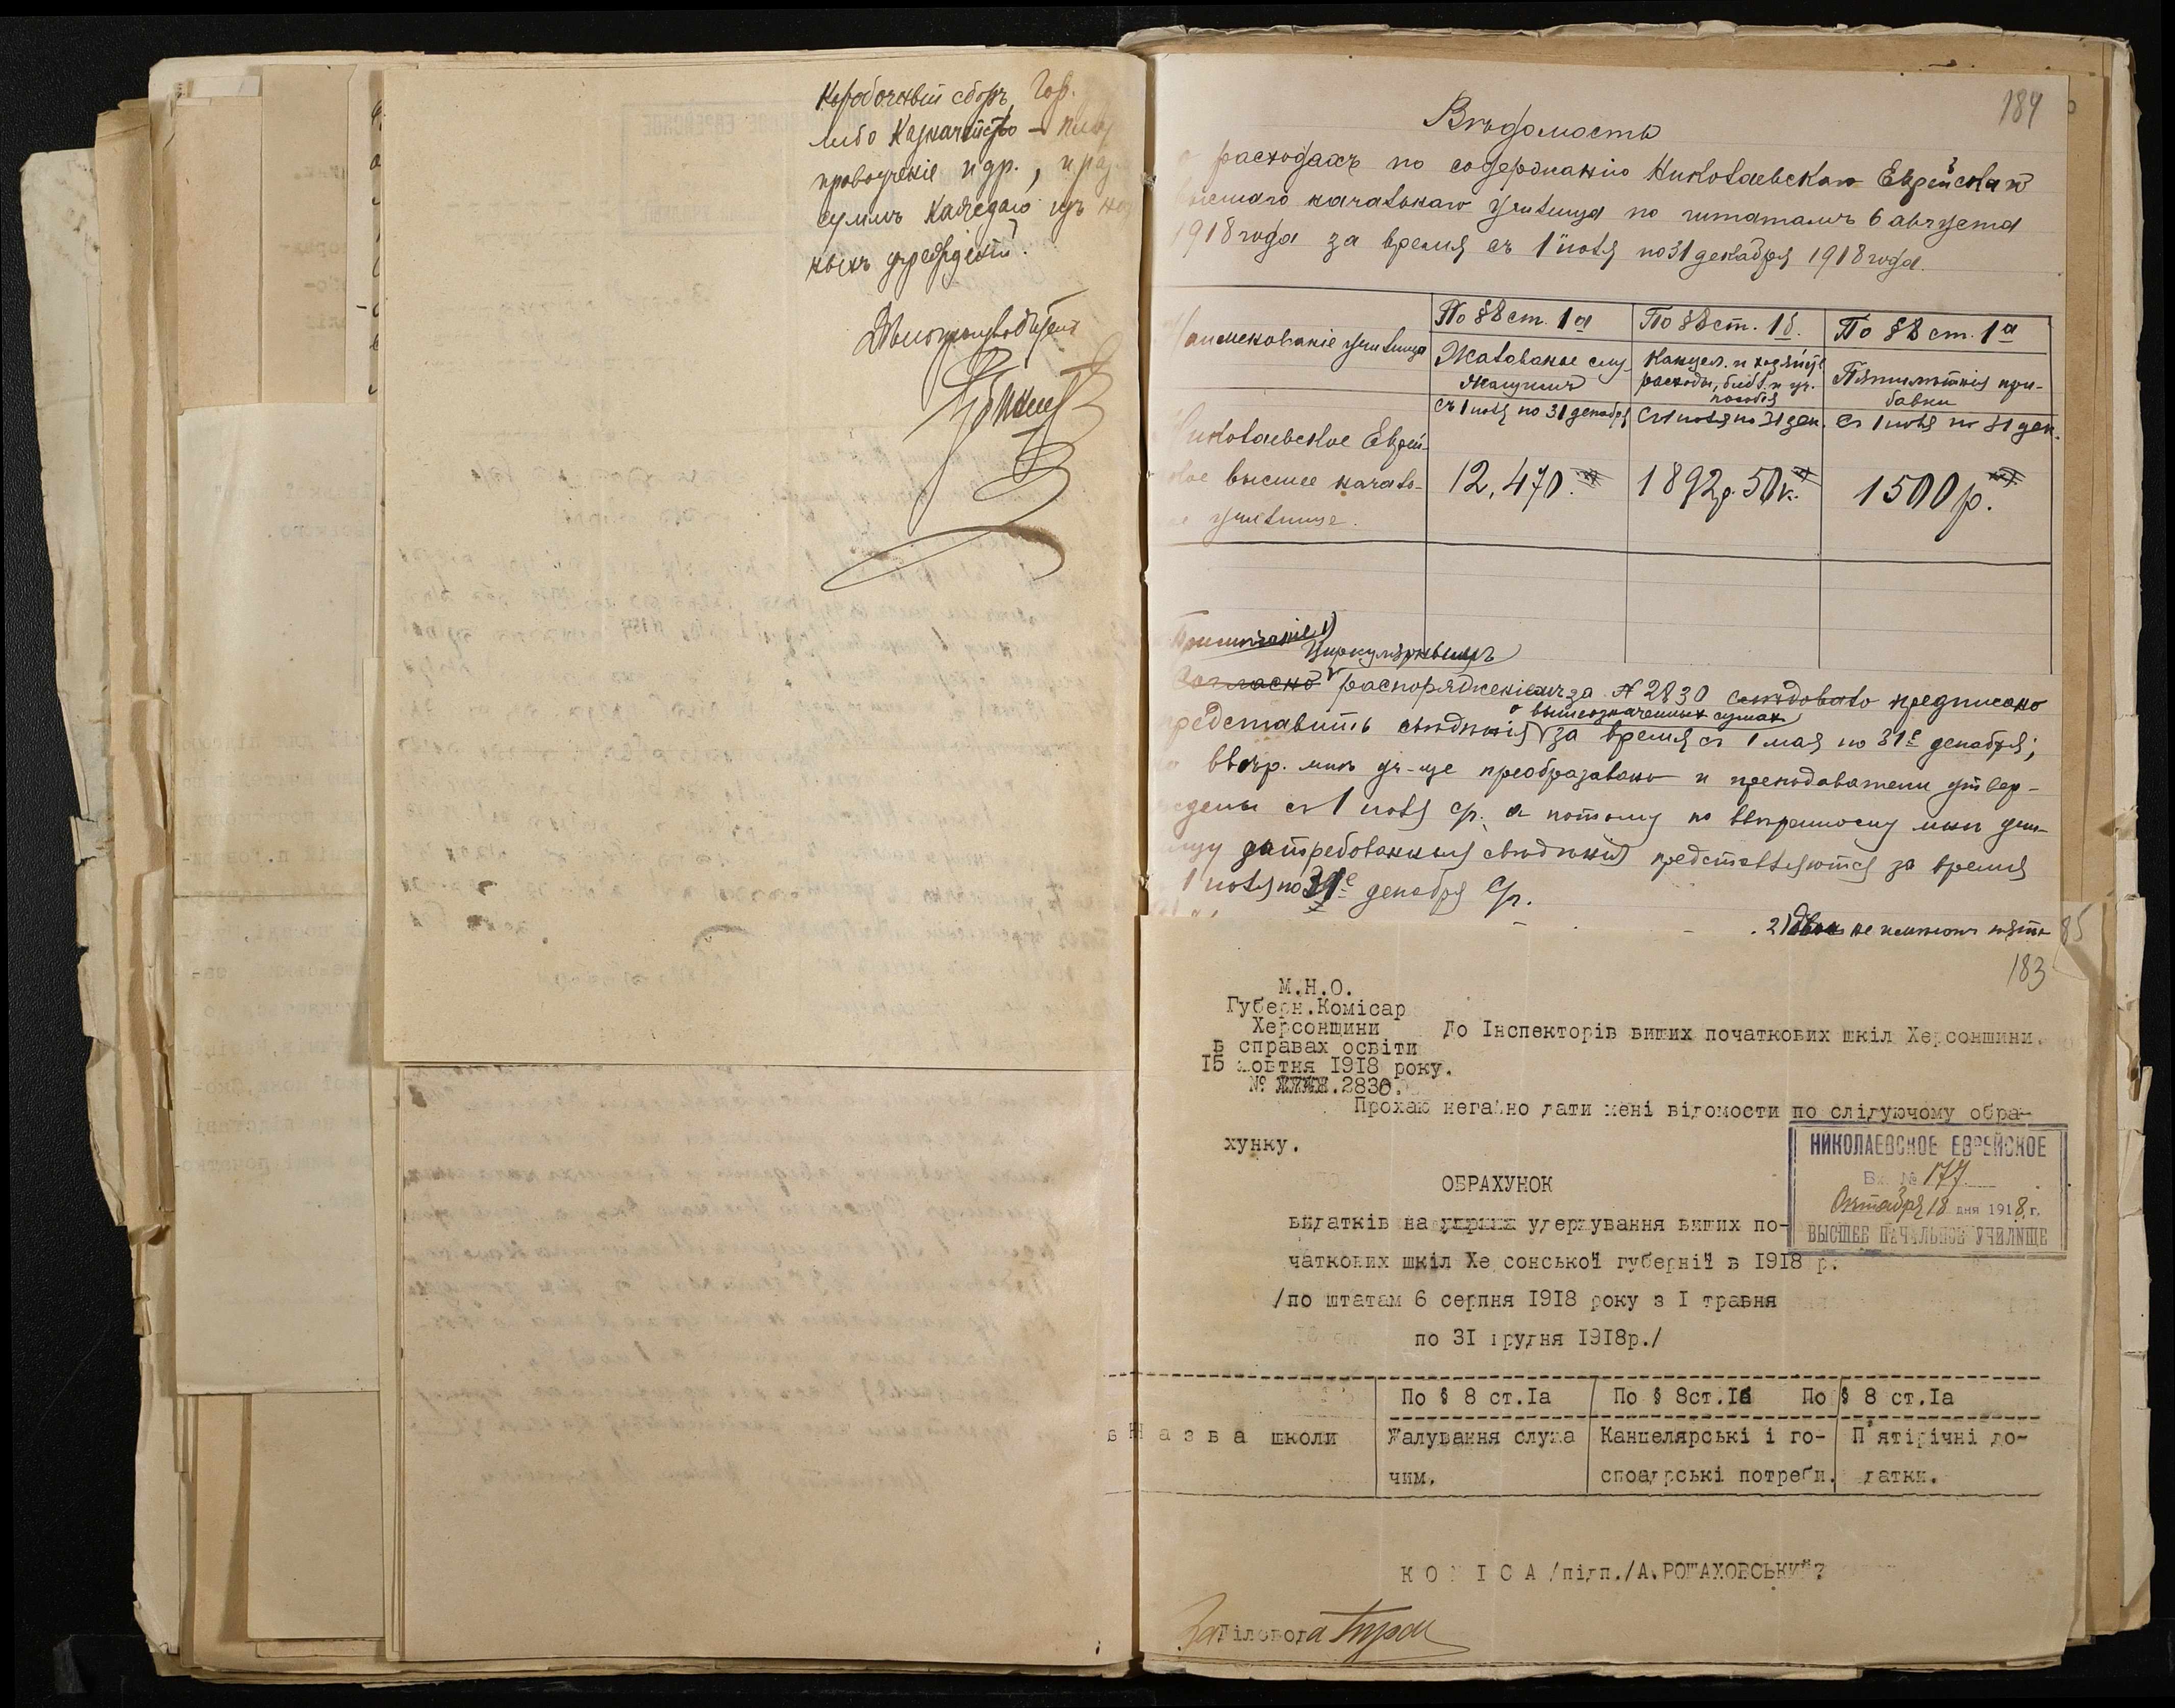 Коробочный сборъ, Гор.
либо Казначейство –
провоученіе и др.,
суммъ каждаго изъ
ныхъ учрежденій.
Дѣлопроизводитель
184
Вѣдомость
о расходахъ по содержанію Николаевскаго Еврейскаго
высшаго начальнаго училища по штатамъ 6 августа
1918 года за время съ 1 іюля по 31 декабря 1918 года.
Наименованіе училища
По §8 ст. 1а
По §8 ст. 1б.
По §8 ст. 1а
Жалованье слу-
жащимъ
Канцел. и хозяйств.
расходы, библ. и уч.
пособія
Пятилѣтнія при-
бавки
Съ 1 іюля по 31 декабря
Съ 1 іюля по 31 дек.
Съ 1 іюля по 31 дек.
Николаевское Еврей-
ское высшее началь-
ное училище.
12,470.
1892 р. 50 к.
1500 р.
Примѣчаніе 1)
Циркулярнымъ
Согласно распоряженіемъ за № 2830 слѣдовало предписано
о вышеозначенныхъ сумахъ
представить свѣдѣнія за время съ 1 мая по 31е декабря;
ввѣр. мнѣ уч-ще преобразовано и преподаватели утвер-
ждены съ 1 іюля с/г. а потому по ввѣренному мнѣ учи-
лищу затребованныя свѣдѣнія представляются за время
1 іюля по 31е декабря с/г.
2) не имѣютъ
85
183
М.Н.О.
Губерн.Комісар
Херсонщини
в справах освіти
15 жовтня 1918 року.
№ .2830.
До Інспекторів вищих початкових шкіл Херсонщини.
Прохаю негайно дати мені відомости по слідуючому обра-
хунку.
НИКОЛАЕВСКОЕ ЕВРЕЙСКОЕ
Вх. № 177
Октября 18 дня 1918 г.
ВЫСШЕЕ НАЧАЛЬНОЕ УЧИЛИЩЕ
ОБРАХУНОК
видатків на удержування вищих по-
чаткових шкіл Херсонської губернії в 1918 р.
/по штатам 6 серпня 1918 року з I травня
по 31 грудня 1918р./
По § 8 ст.Iа
По § 8ст.Iб
По § 8 ст.Iа
Назва школи
Жалування служа
чим.
Канцелярські і го-
сподарські потреби.
П'ятірічні до-
датки.
КОМІСАР /підп./А.РОШАХОВСЬКИЙ?
За Діловода